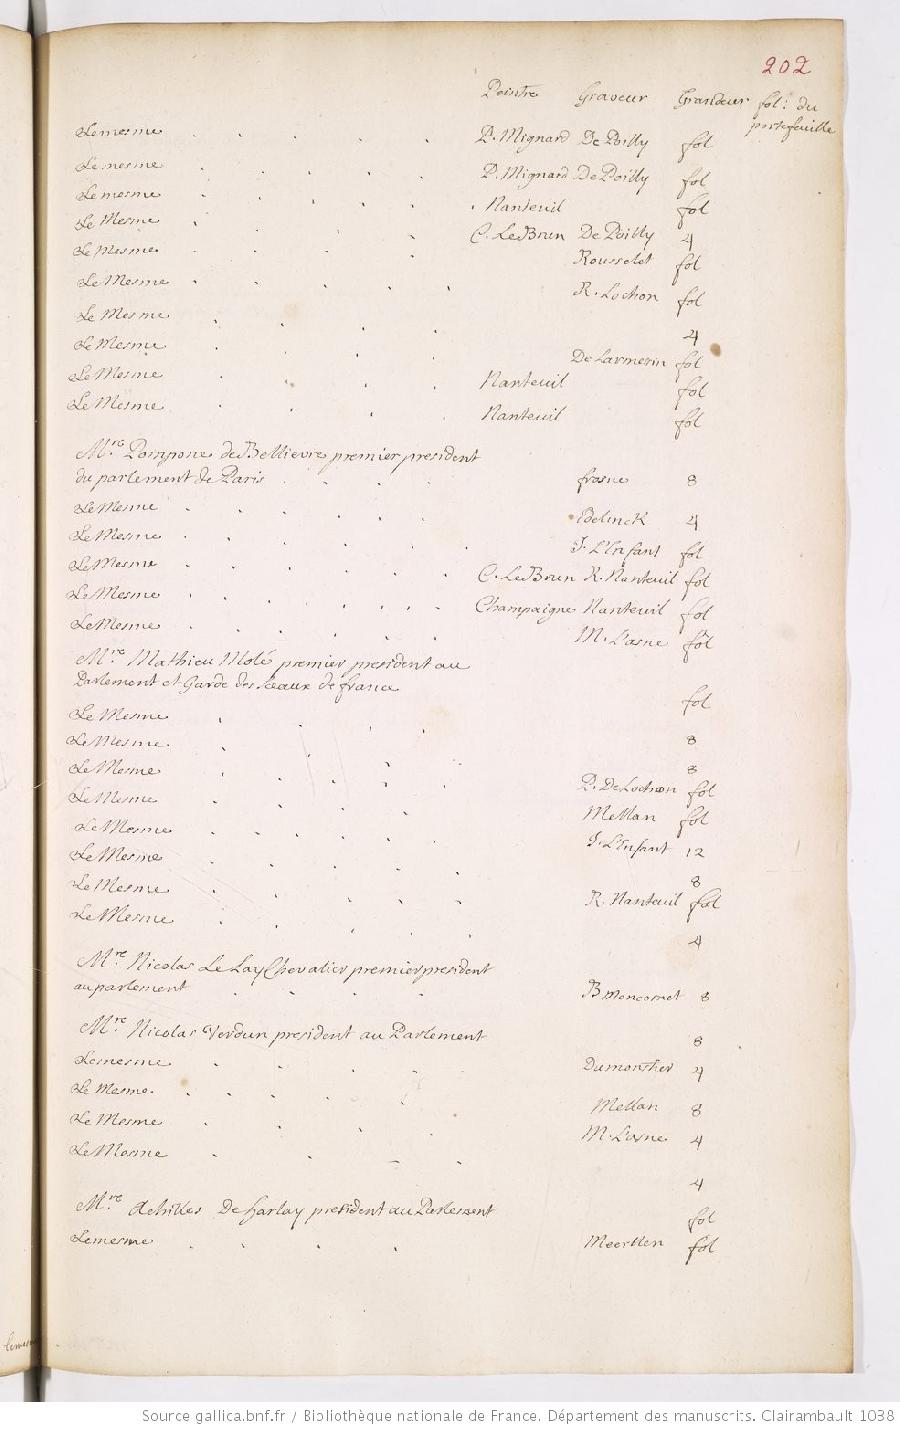 202
Peintre Graveur Grandeur fol: du
portefeuille
Lemesme P. Mignard De Poilly fol
Le mesme P. Mignard De Poilly fol
Le mesme Nanteuil fol
Le Mesme C. LeBrun De Poilly 4
Le Mesme Rousselet fol
Le Mesme R. Lochon fol
Le Mesme 4
Le Mesme De Larmesin fol
Le Mesme Nanteuil fol
Le Mesme Nanteuil fol
Mre. Pompone de Bellievre premier president
du parlement de Paris frosne 8
Le Mesme Edelinck 4
Le Mesme J. L'Enfant fol
Le Mesme C. LeBrun R. Nanteuil fol
Le Mesme Champaigne Nanteuil fol
Le Mesme M. L'asne fol
Mre. Mathieu Molé premier president au
Parlement et Garde des sceaux de france fol
Le Mesme 8
Le Mesme 8
Le Mesme P. De Lochon fol
Le Mesme Mellan fol
Le Mesme J. L'Enfant 12
Le Mesme 8
Le Mesme R. Nanteuil fol
Le Mesme 4
Mre. Nicolas Le Lay Chevalier premier president
au parlement B Moncornet 8
Mre. Nicolas Verdun president au Parlement 8
Lemesme Dumonstier 4
Le Mesme Mellan 8
Le Mesme M. L'asne 4
Le Mesme 4
Mre. Achilles De harlay president au Parlement fol
Lemesme fol
Source gallica.bnf.fr / Bibliothèque nationale de France. Département des manuscrits. Clairambault 1038